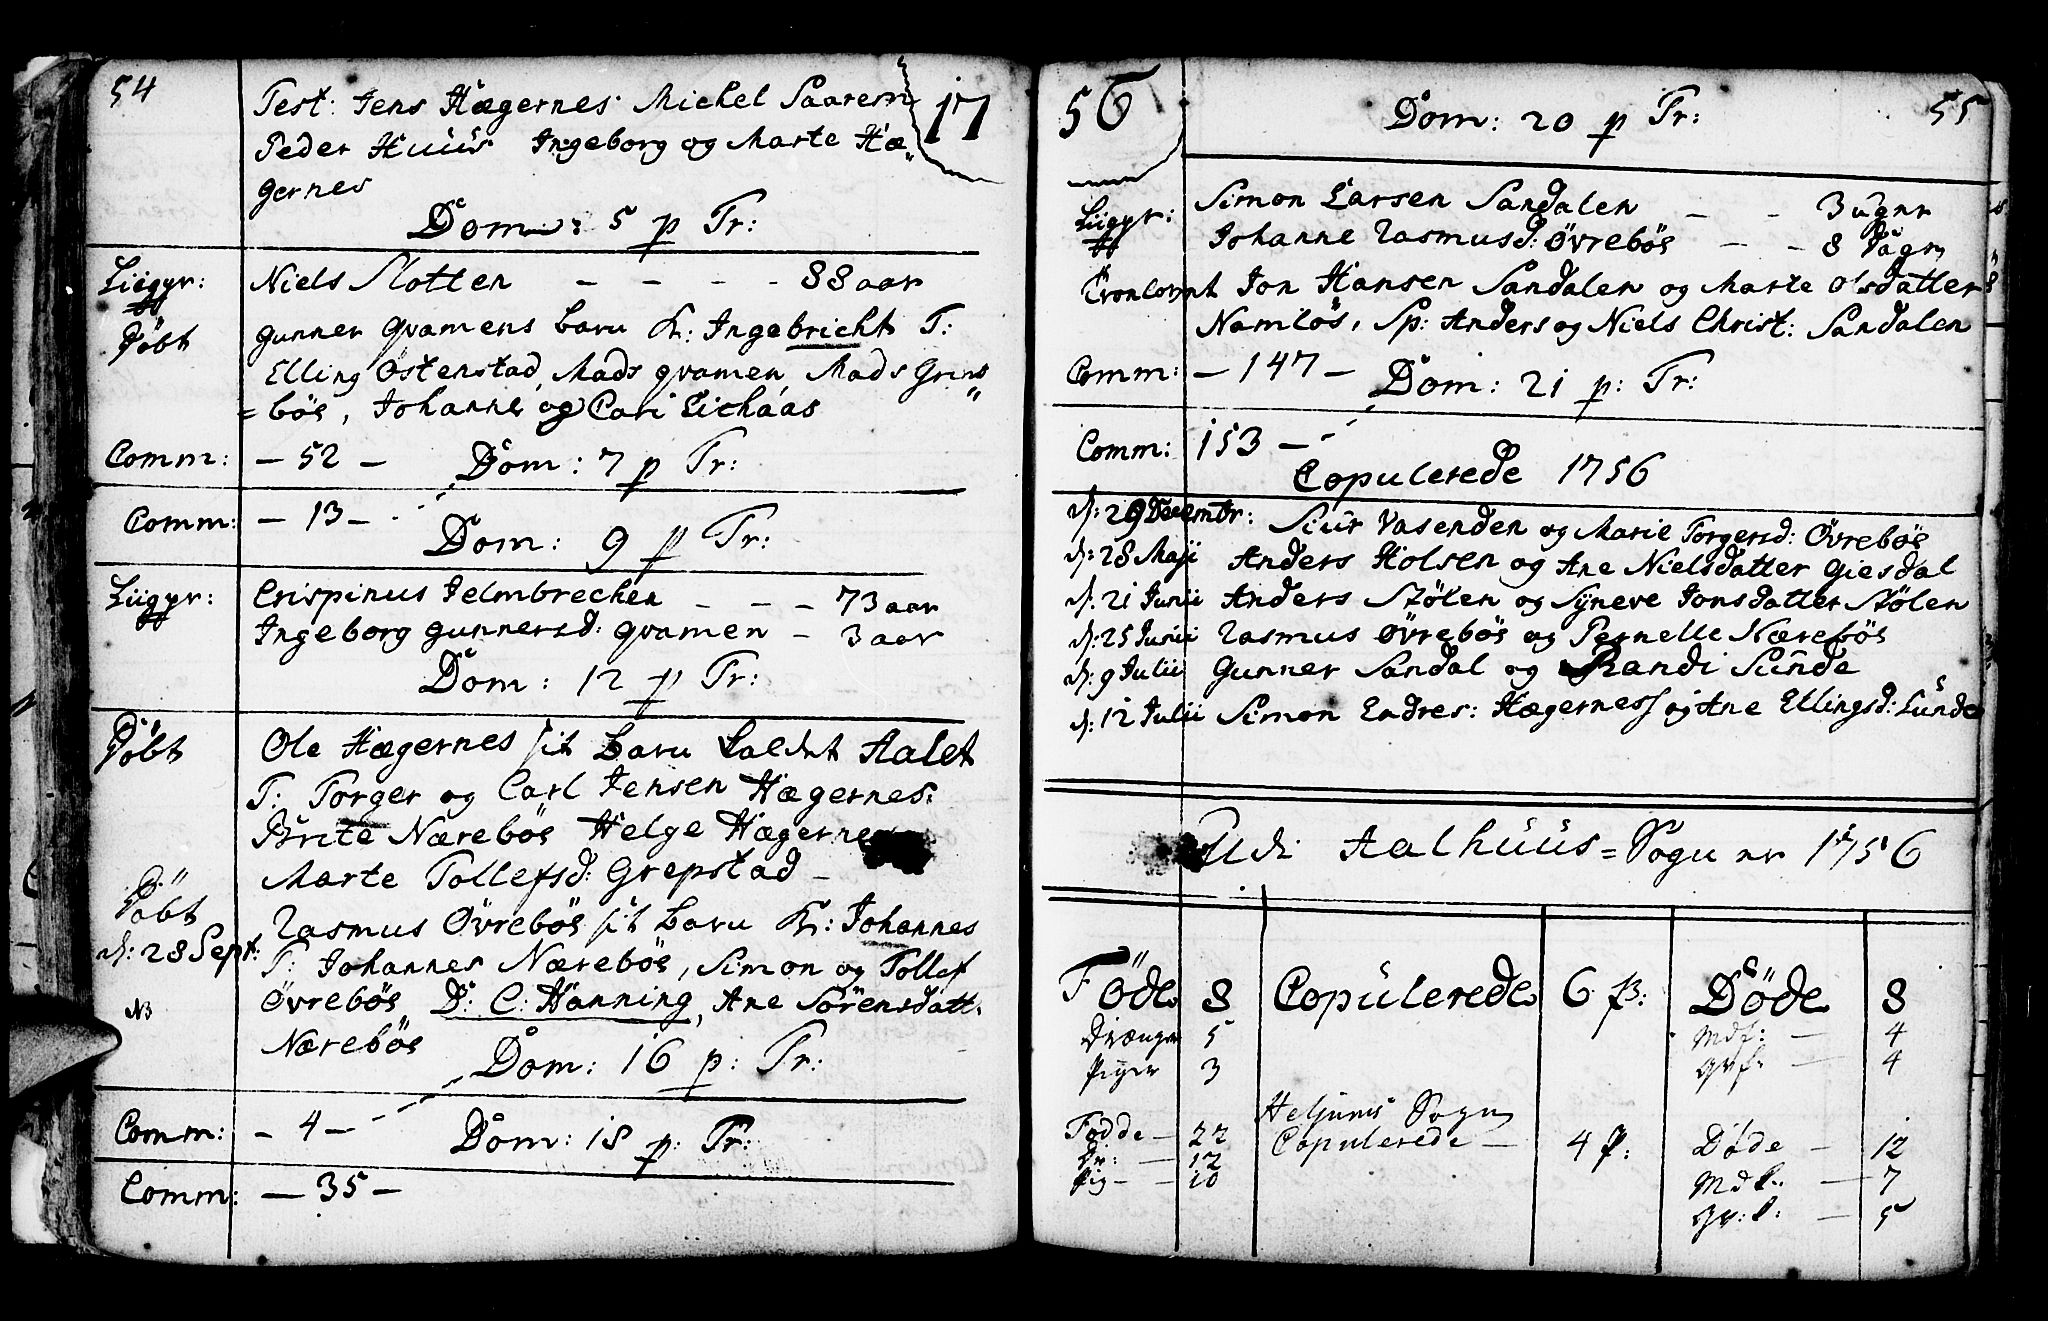 54
Test: Jens Hægernes Michel Saarem
17
Peder Huus Ingeborg og Marte Hæ„
gernes
Dom: 5 p Tr:
Liigpr: Niels Slotten – – – – 88 aar
Döbt Gunner Qvamens barn K: Ingebricht T:
Elling Östenstad, Mads Qvamen, Mads Grims„
=böe, Johanne og Cari Eichaas
Comm: – 52 – Dom: 7 p Tr:
Comm: – 13 – Dom: 9 p Tr:
Liigpr: Crispinus Jelmbrechen – – – 73 aar
Ingeborg Gunnersd: Qvamen – 3 aar
Dom: 12 p Tr:
Döbt Ole Hægernes sit barn kaldet Aalet
T: Torger og Carl Jensen Hægernes:
Brite Næreböe Helge Hægernes
Marte Tollefsd: Grepstad –
Döbt Rasmus Övreböe sit barn K: Johannes
d: 28 Sept: T: Johannes Næreböe, Simon og Tollef
NB Övreböe D: C: Hanning, Ane Sörensdatt:
Næreböe Dom: 16 p: Tr:
Comm: – 4 – Dom: 18 p: Tr:
Comm: – 35 –
56 Dom: 20 p Tr: 55
Simon Larsen Sandalen – – 3 ugnr
Liigpr: Johanne Rasmusd: Övreböe – – 8 dagr
Tronlovnt Jon Hansen Sandalen og Marte Olsdatter
Namlös, Sp: Anders og Niels Christ: Sandalen
Comm: – 147 – Dom: 21 p: Tr:
Comm: 153 –
Copulerede 1756
d: 29 Decembr: Siur Vasenden og Marie Torgersd: Övreböe
d: 28 Maji Anders Holsen og Ane Nielsdatter Giesdal
d: 21 Junii Anders Stölen og Syneve Jonsdatter Stölen
d: 25 Junii Rasmus Övreböe og Pernelle Nærebös
d: 9 Julii Gunner Sandal og Randi Sunde
d: 12 Julii Simon Endres: Hægernes og Ane Ellingsd: Lunde
Udi Aalhuus=Sogn er 1756
Föde 8 Copulerede 6 p: Döde 8
Drænger 5 Mdk: – 4
Piger 3 Qvk: – 4
Heljums Sogn
Födde – 22 Copulerede – 4 p: Döde – 12
Dr: – 12 Mdk: – 7
Pig – – 10 Qv:k: – 5